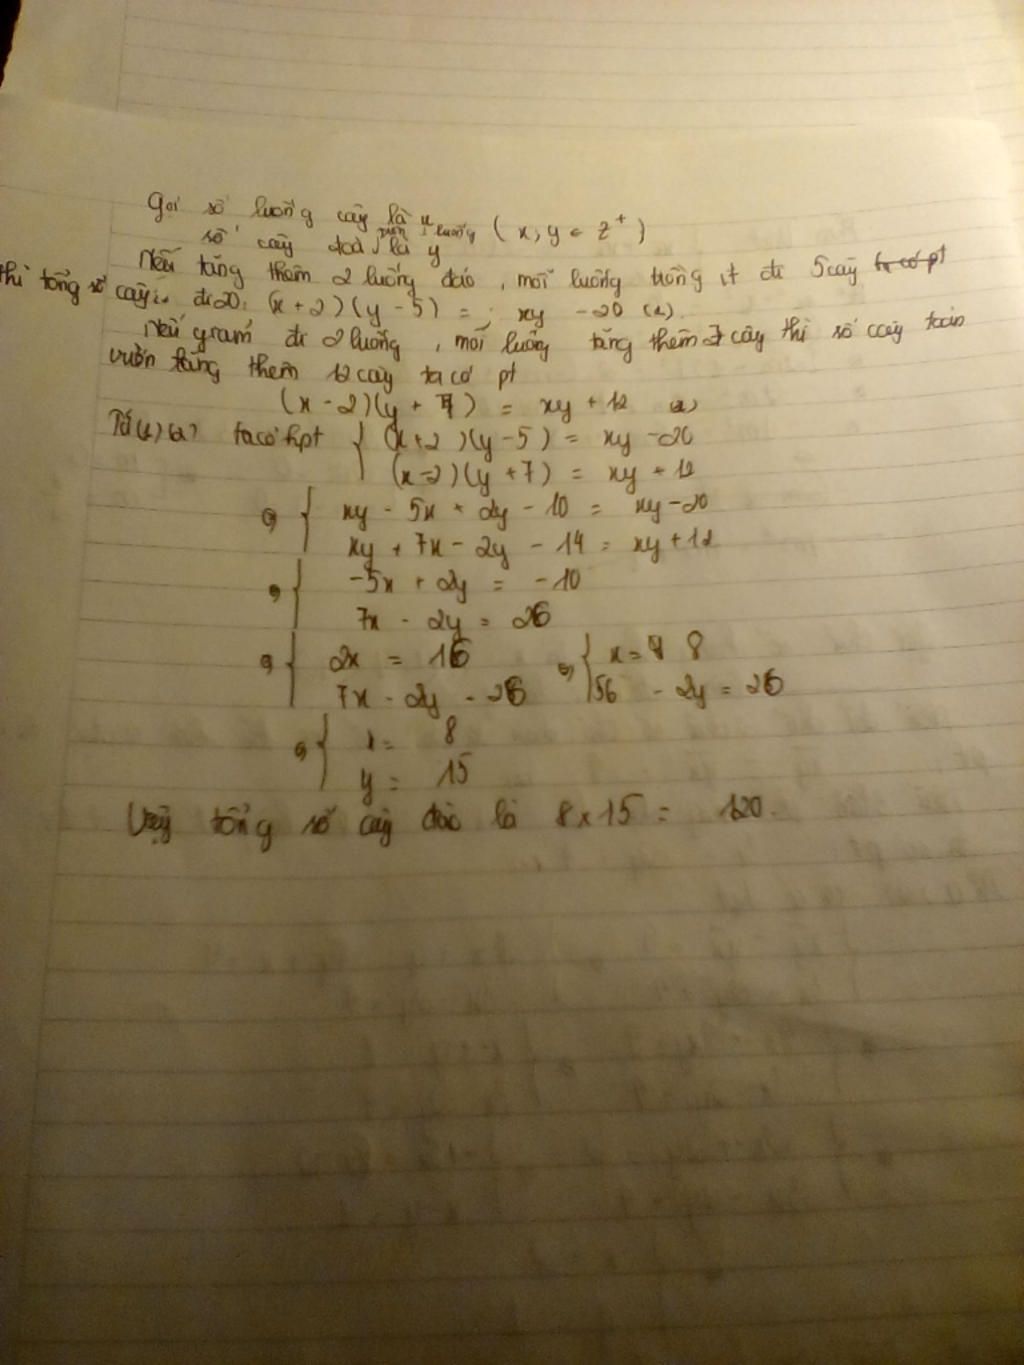 Gọi số luống cây là x
số cây đào trên 1 luống là y (x, y ∈ Z⁺)
Nếu tăng thêm 2 luống đào, mỗi luống trồng ít đi 5 cây ta có pt
thì tổng số cây đi 20: (x + 2)(y - 5) = xy - 20 (1)
Nếu giảm đi 2 luống, mỗi luống tăng thêm 7 cây thì số cây toàn
vườn tăng thêm 12 cây ta có pt
(x - 2)(y + 7) = xy + 12 (2)
Từ (1) (2) ta có hpt { (x+2)(y-5) = xy - 20
(x-2)(y+7) = xy + 12
{ xy - 5x + 2y - 10 = xy - 20
xy + 7x - 2y - 14 = xy + 12
{ -5x + 2y = -10
7x - 2y = 26
{ 2x = 16 { x = 8
7x - 2y = 26 56 - 2y = 26
{ x = 8
y = 15
Vậy tổng số cây đào là 8 x 15 = 120.